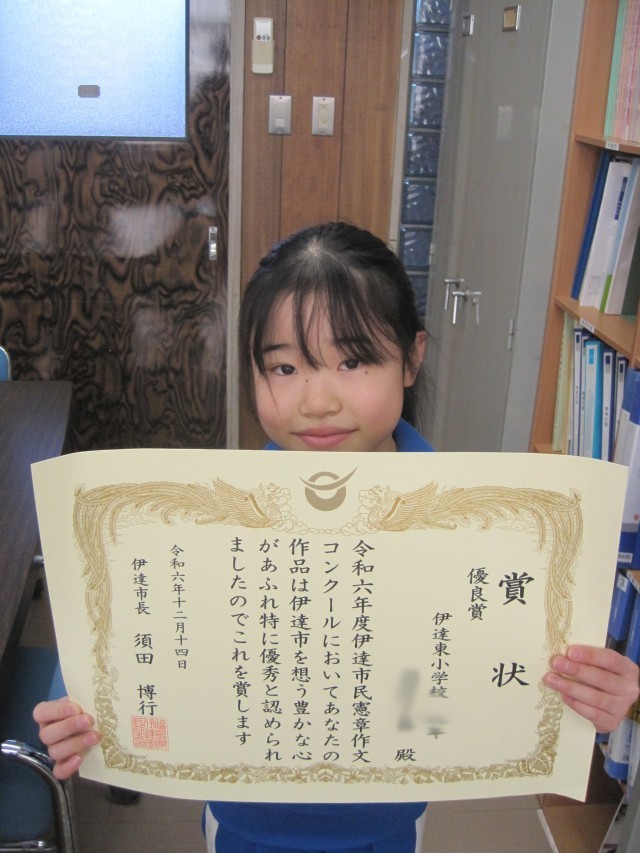 賞状
優良賞
伊達東小学校
殿
令和六年度伊達市民憲章作文
コンクールにおいてあなたの
作品は伊達市を想う豊かな心
があふれ特に優秀と認められ
ましたのでこれを賞します
令和六年十二月十四日
伊達市長 須田 博行